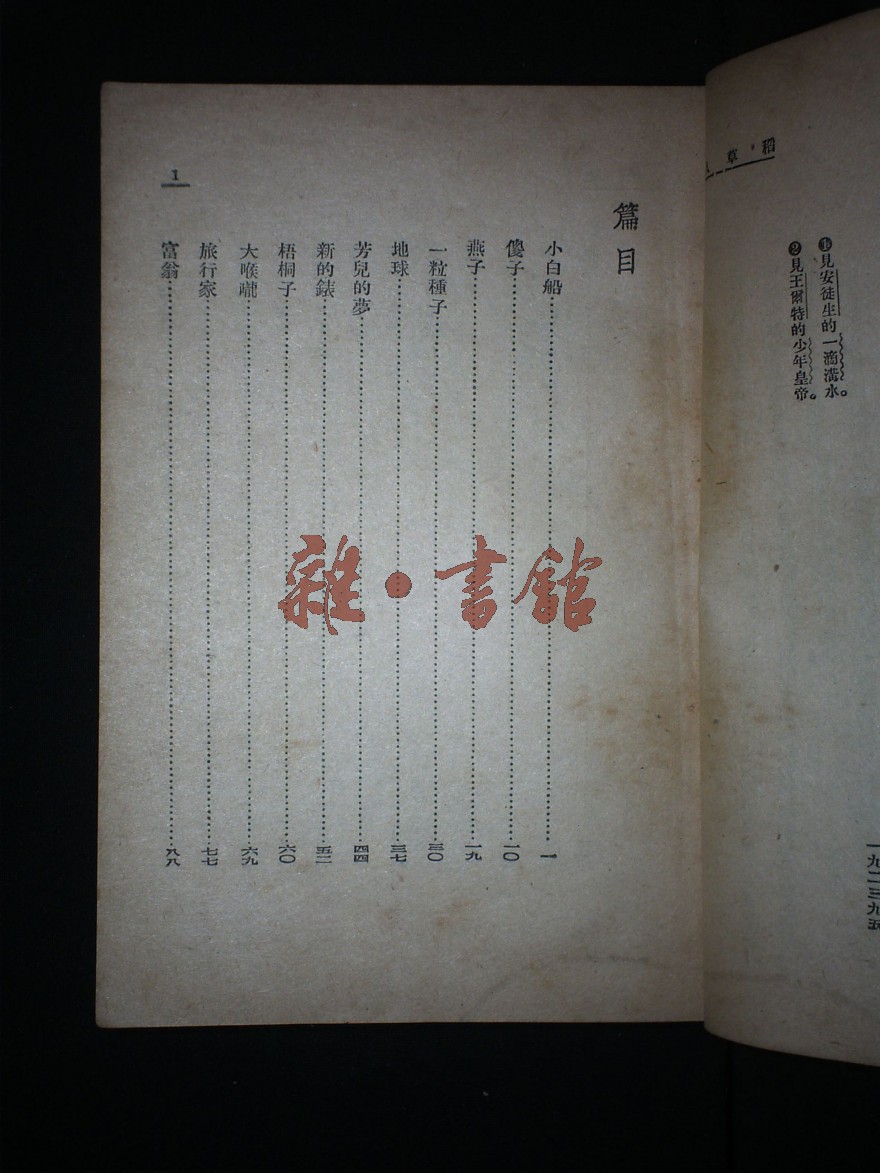 稻草
❶見安徒生的一滴溝水。
❷見王爾特的少年皇帝。
一九二三九五
篇目
小白船⋯⋯一
傻子⋯⋯一〇
燕子⋯⋯一九
一粒種子⋯⋯三〇
地球⋯⋯三七
芳兒的夢⋯⋯四四
新的錶⋯⋯五二
梧桐子⋯⋯六〇
大喉嚨⋯⋯六九
旅行家⋯⋯七七
富翁⋯⋯八八
1
雜·書館